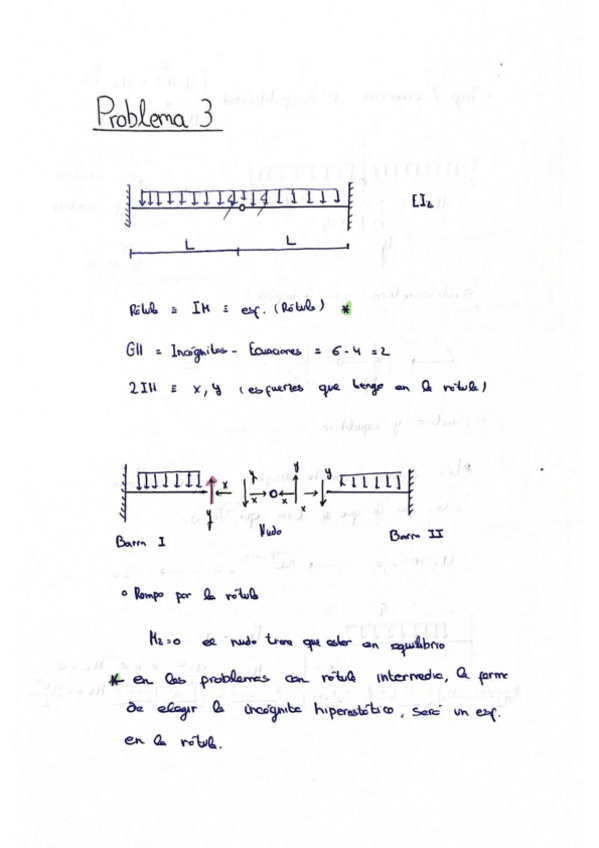 Problema 3
EI₂
L L
Rótula ≡ IH ≡ esf. (Rótula) *
GH = Incógnitas - Ecuaciones = 6 - 4 = 2
2 IH ≡ x, y (esfuerzos que tengo en la rótula)
y y y
x x x x
y
Nudo
Barra I Barra II
° Rompo por la rótula
M₂=0 el nudo tiene que estar en equilibrio
* en los problemas con rótula intermedia, la forma
de elegir la incógnita hiperestático, será un esf.
en la rótula.